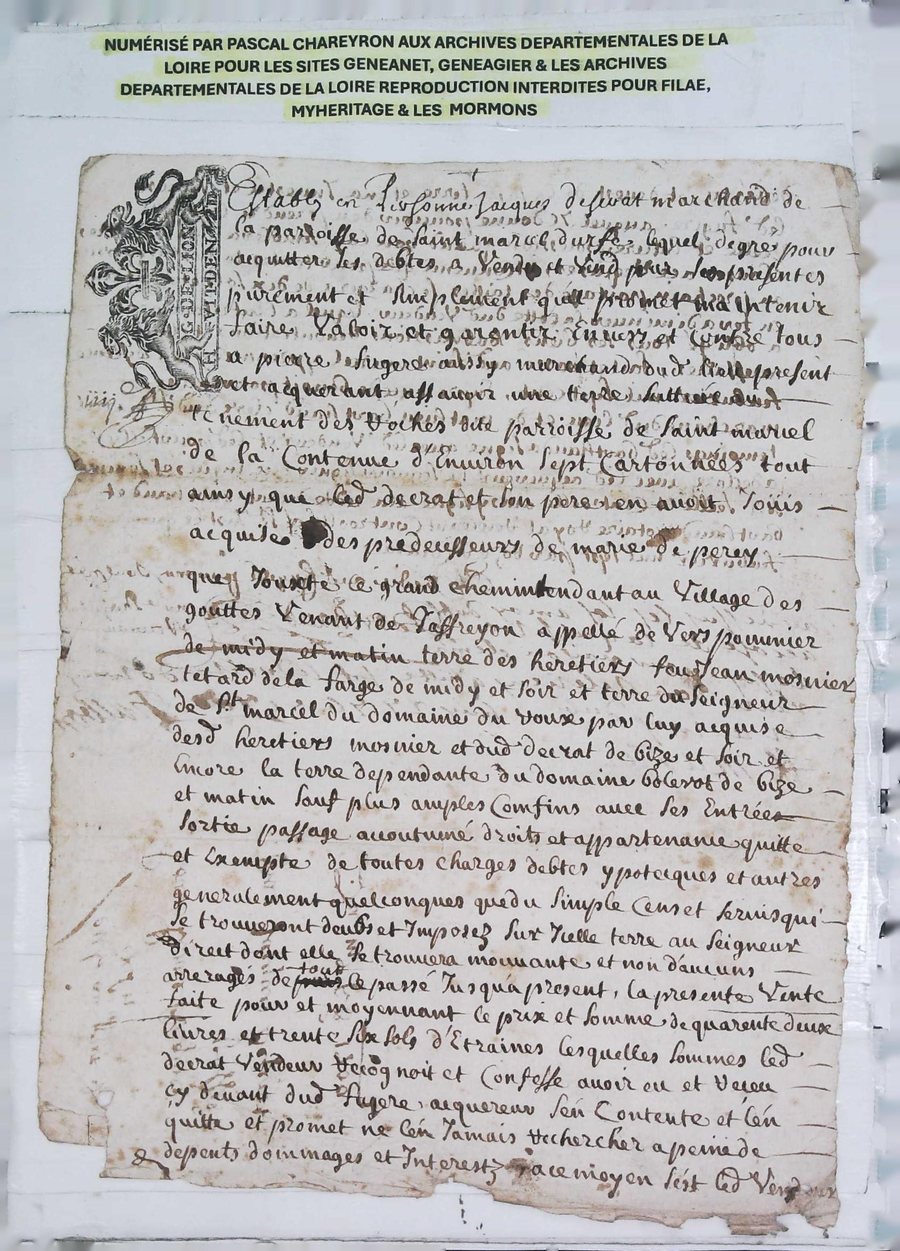 NUMÉRISÉ PAR PASCAL CHAREYRON AUX ARCHIVES DEPARTEMENTALES DE LA
LOIRE POUR LES SITES GENEANET, GENEAGIER & LES ARCHIVES
DEPARTEMENTALES DE LA LOIRE REPRODUCTION INTERDITES POUR FILAE,
MYHERITAGE & LES MORMONS
G. DE LION
Estably en Personne Jacques decrat marchand de
la parroisse de Saint marcel durfé, lequel degre pour
acquitter ses debtes a Vendu et Vend par ses presentes
purement et simplement promet maintenir
faire Valoir et garentir Envers et Contre tous
a pierre fugere aussy marchand dud. lieu present
et acquerant assavoir une terre
tenement des Roches dite parroisse de Saint marcel
de la Contenue d'Environ Sept Cartonnées tout
ainsy que led decrat et son pere en avoit Jouis
acquise des predecesseurs de marie de perey
que Jouxte le grand chemin tendant au Village des
gouttes Venant de Jaffreyon appellé de Vers pommier
de midy et matin terre des heretiers feu Jean mosnier
tetard de la farge de midy et soir et terre du Seigneur
de St marcel du domaine du roux par luy acquise
desd heretiers mosnier et dud decrat de bize et soir et
Encore la terre dependante du domaine de bize
et matin sauf plus amples Comfins avec ses Entrées
Sortie passage accoutumé droits et appartenance quitte
et Exempte de toutes charges debtes ypotecques et autres
generalement quelconques que du Simple Cens et servis qui
se trouveront deubs et Imposez Sur Icelle terre au Seigneur
direct dont elle se trouvera mouvante et non d'aucuns
arrerages de tout le passé Jusqu'a present, la presente Vente
faite pour et moyennant le prix et somme de quarente deux
livres et trente six sols d'Etraines lesquelles sommes led
decrat Vendeur recognoit et Confesse avoir eu et receu
cy devant dud fugere acquereur s'en Contente et l'en
quitte et promet ne l'en Jamais rechercher a peine de
depents dommages et Interestz a ce moyen s'est led Vendeur